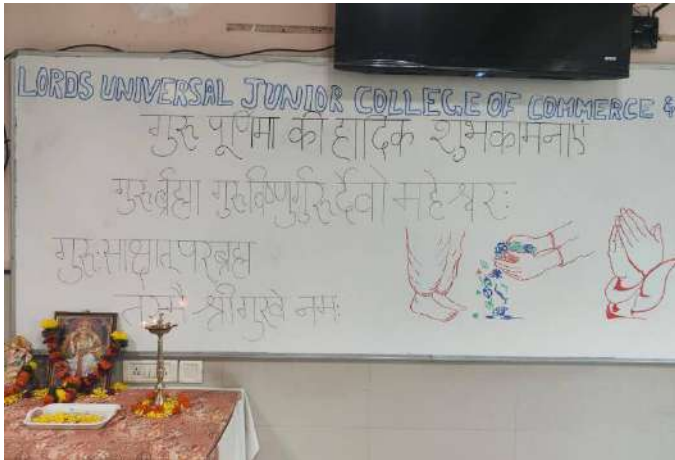 LORDS UNIVERSAL JUNIOR COLLEGE OF COMMERCE &
गुरु पूर्णिमा की हार्दिक शुभकामनाएँ
गुरुर्ब्रह्मा गुरुर्विष्णुर्गुरुर्देवो महेश्वरः
गुरुःसाक्षात् परब्रह्म
तस्मै श्रीगुरवे नमः